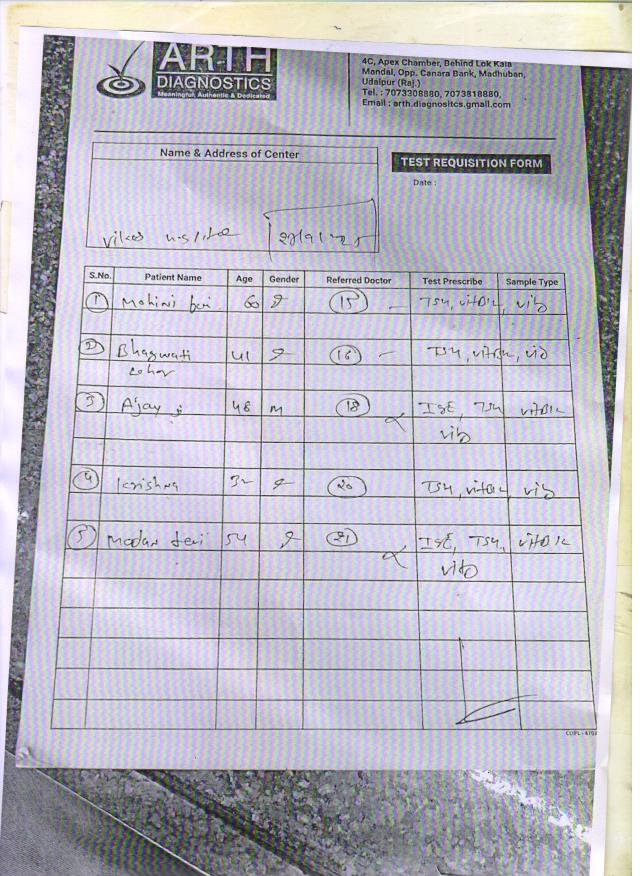 ARTH
DIAGNOSTICS
Meaningful, Authentic & Dedicated
4C, Apex Chamber, Behind Lok Kala
Mandal, Opp. Canara Bank, Madhuban,
Udaipur (Raj.)
Tel. : 7073308880, 7073818880,
Email : arth.diagnositcs.gmail.com
Name & Address of Center
TEST REQUISITION FORM
Date :
S.No. Patient Name Age Gender Referred Doctor Test Prescribe Sample Type
1 Mohini 60 15 TSH, vitB12, vitD
2 Bhagwati 41 16 TSH, vitB12, vitD
3 Ajay ji 48 M 18 IgE, TSH vitB12
vitD
4 Krishna 32 20 TSH, vitB12, vitD
5 Madan 54 21 IgE, TSH, vitB12
vitD